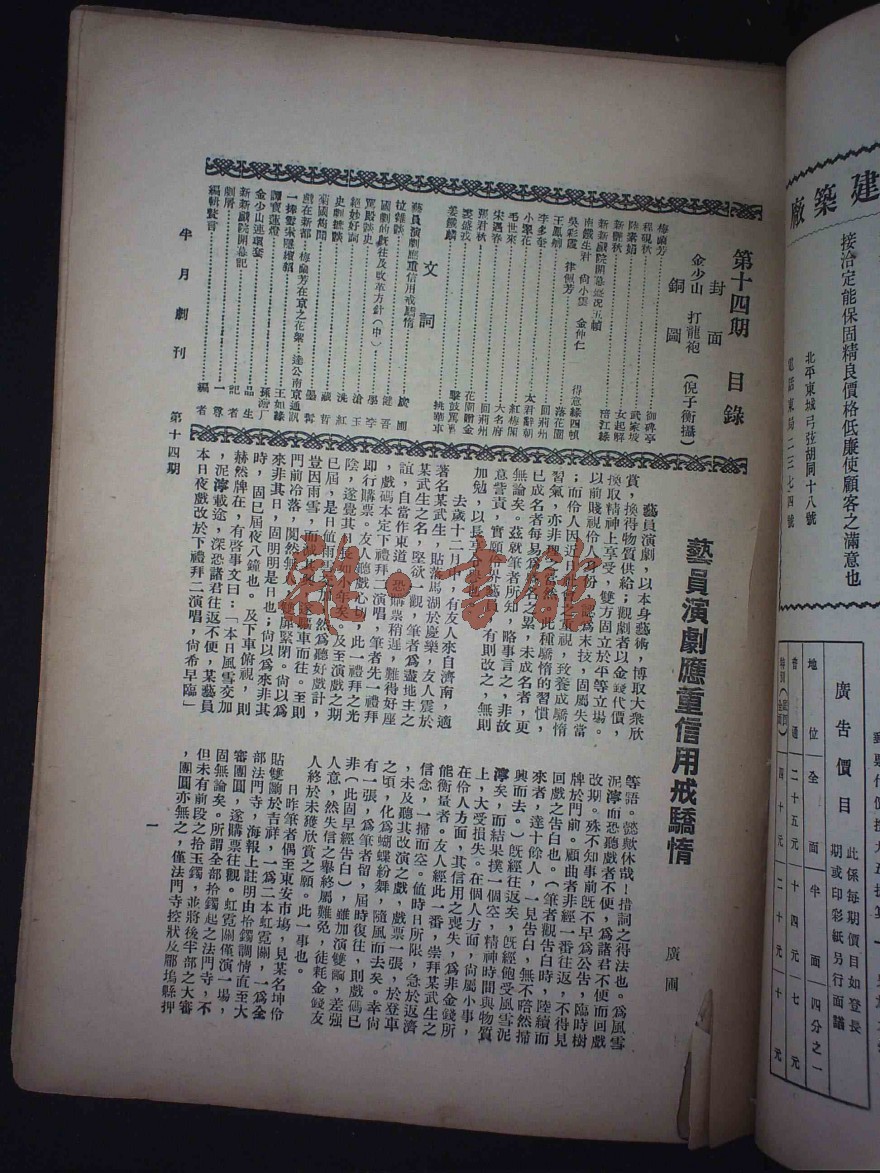 第十四期 目錄
封面
金少山 打龍袍 (倪子衡攝)
銅圖
梅蘭芳 御碑亭
程硯秋 武家坡
陸素娟 女起解
新艷秋
新新戲院開幕盛況五幀
南鐵生君 尚小雲 金仲仁 得意緣四幀
吳彩霞 律佩芳
王鳳卿
李多奎
小翠花
毛世來 紅梅閣
宋遇春 大名府
鄧君秋 回荊州
裘盛戎
姜鐵麟 挑華車
文詞
藝員演劇應重信用戒驕惰 廣圃
拉雜談 健吾
國劇的既往及改革方針(中)
罵殿談史
絕妙好詞 滄玉
史劇摭談 洗紅
菊國煥聞
戲在新都 墨齋
梅蘭芳在京之花絮 達公南京通訊
一捧雪宋隱續貂
譚寶蓮燈
金少山連環套
新新戲院開幕記 記者
劇屑 一尊
編輯贅言 編者
半月劇刊 第十四期
藝員演劇應重信用戒驕惰
廣圃
藝員演劇,以本身藝術,博取大衆欣
賞,換得物質供給;觀劇者以金錢代價,
換取精神上享受,雙方固立於平等立場。
以前賤視伶人身份,認為末技,固屬失當
;而伶人因近人社會之重視,致養成驕惰
習氣,亦非理之當然。此種驕惰的習慣,
已成名者每易為盛名之累,未成名者,更
無論矣。茲就筆者所知,略事言之,非故
意訾責,實願伶界藝員,有則改之,無則
加勉,以長
去歲十二月中,有友人來自濟南,適
著名某武生,貼落馬湖於慶樂,友人震於
某武生之名,堅欲一觀,筆者為盡地主之
誼,自當作東道,恐購票稍遲,難得好座
,戲碼本定下禮拜二演唱,筆者先一禮拜
即行購票。友人聽戲心切,此一禮拜之光
陰,遂覺其長如小年矣。及至演戲之期
已屆,是日値雨雪交加,然為聽好戲計,
豈因雨雪,而減豪興,遂驅車而往。至則
門前冷落,闃然無人,雙扉緊閉。尙以為
來非其日,固明明是日也;尙以為來非其
時,固已屆夜八鐘也。及下車俯視,則
赫然牌在,有啓事文曰:「本日風雪交加
,泥濘載途,深恐諸君往返不便,某藝員
本日夜戲改於下禮拜二演唱,尙希早臨」
等語。懿歟休哉!措詞之得法也。為風雪
泥濘而恐聽戲者不便,為諸君不便而回戲
改期。殊不知事前既不早為公告,臨時樹
牌於門前。顧曲者非經一番往返,不得見
回戲之告白也。(筆者觀告白時,陸續而
來者,達十餘人,一見告白,無不喑然掃
興而去。)既經往返矣,既經飽受風雪泥
濘矣,而結果撲一個空,精神時間與物質
上,大受損失。在個人方面,尙屬小事,
在伶人方面,其信用之喪失,為非金錢所
能衡量者。友人經此一番,崇拜某武生之
信念,一掃而空。值時日所限,急於返濟
,未及聽其改演之戲,戲票一張,於登車
之頃,化為蝴蝶紛舞,隨風而去矣。幸尙
有一張,為筆者留,屆時復往,則戲碼已
非(此固早經告白),雖加演雙齣,差強
人意,然失信之舉終屬難免,徒耗金錢友
人終於未獲欣賞之願。此一事也。
日昨筆者偶至東安市場,見某名坤伶
貼雙齣於吉祥,一為二本虹霓關,一為全
部法門寺,海報上註明由拾鐲調情直至大
審團圓,遂購票往觀。虹霓關僅演一場,
固無論矣。所謂全部拾鐲起之法門寺,不
但未有前段之拾玉鐲,並將後半部之大審
,團圓亦無之,僅法門寺控狀及郿塢縣押
一
建築廠
接洽定能保固精良價格低廉使顧客之滿意也
北平東城弓弦胡同十八號
電話東局二三七四號
廣告價目
此係每期價目如登長
期或印彩紙另行面議
地位 全面 半面 四分之一
普通 二十五元 十四元 七元
特別 四十元 二十元 十元
乾·書館